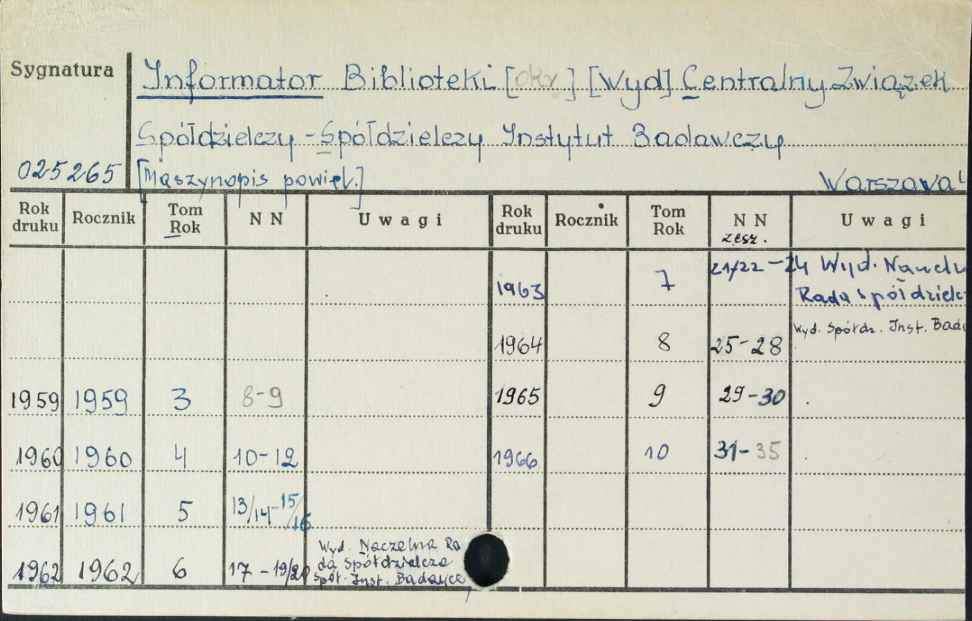 Sygnatura
Informator Biblioteki [Okr.] [Wyd] Centralny Związek
Spółdzielczy - Spółdzielczy Instytut Badawczy
025265 [Maszynopis powiel.] Warszawa
Rok druku Rocznik Tom Rok N N Uwagi Rok druku Rocznik Tom Rok N N zesz. Uwagi
1963 7 21/22-24 Wyd.
Rada Spółdzielc
1964 8 25-28 Wyd. Spółdz. Inst. Bada
1959 1959 3 8-9 1965 9 29-30
1960 1960 4 10-12 1966 10 31-35
1961 1961 5 13/14-15/16
1962 1962 6 17-19/20 Wyd. Naczelna Ra
da Spółdzielcza
Spół. Inst.